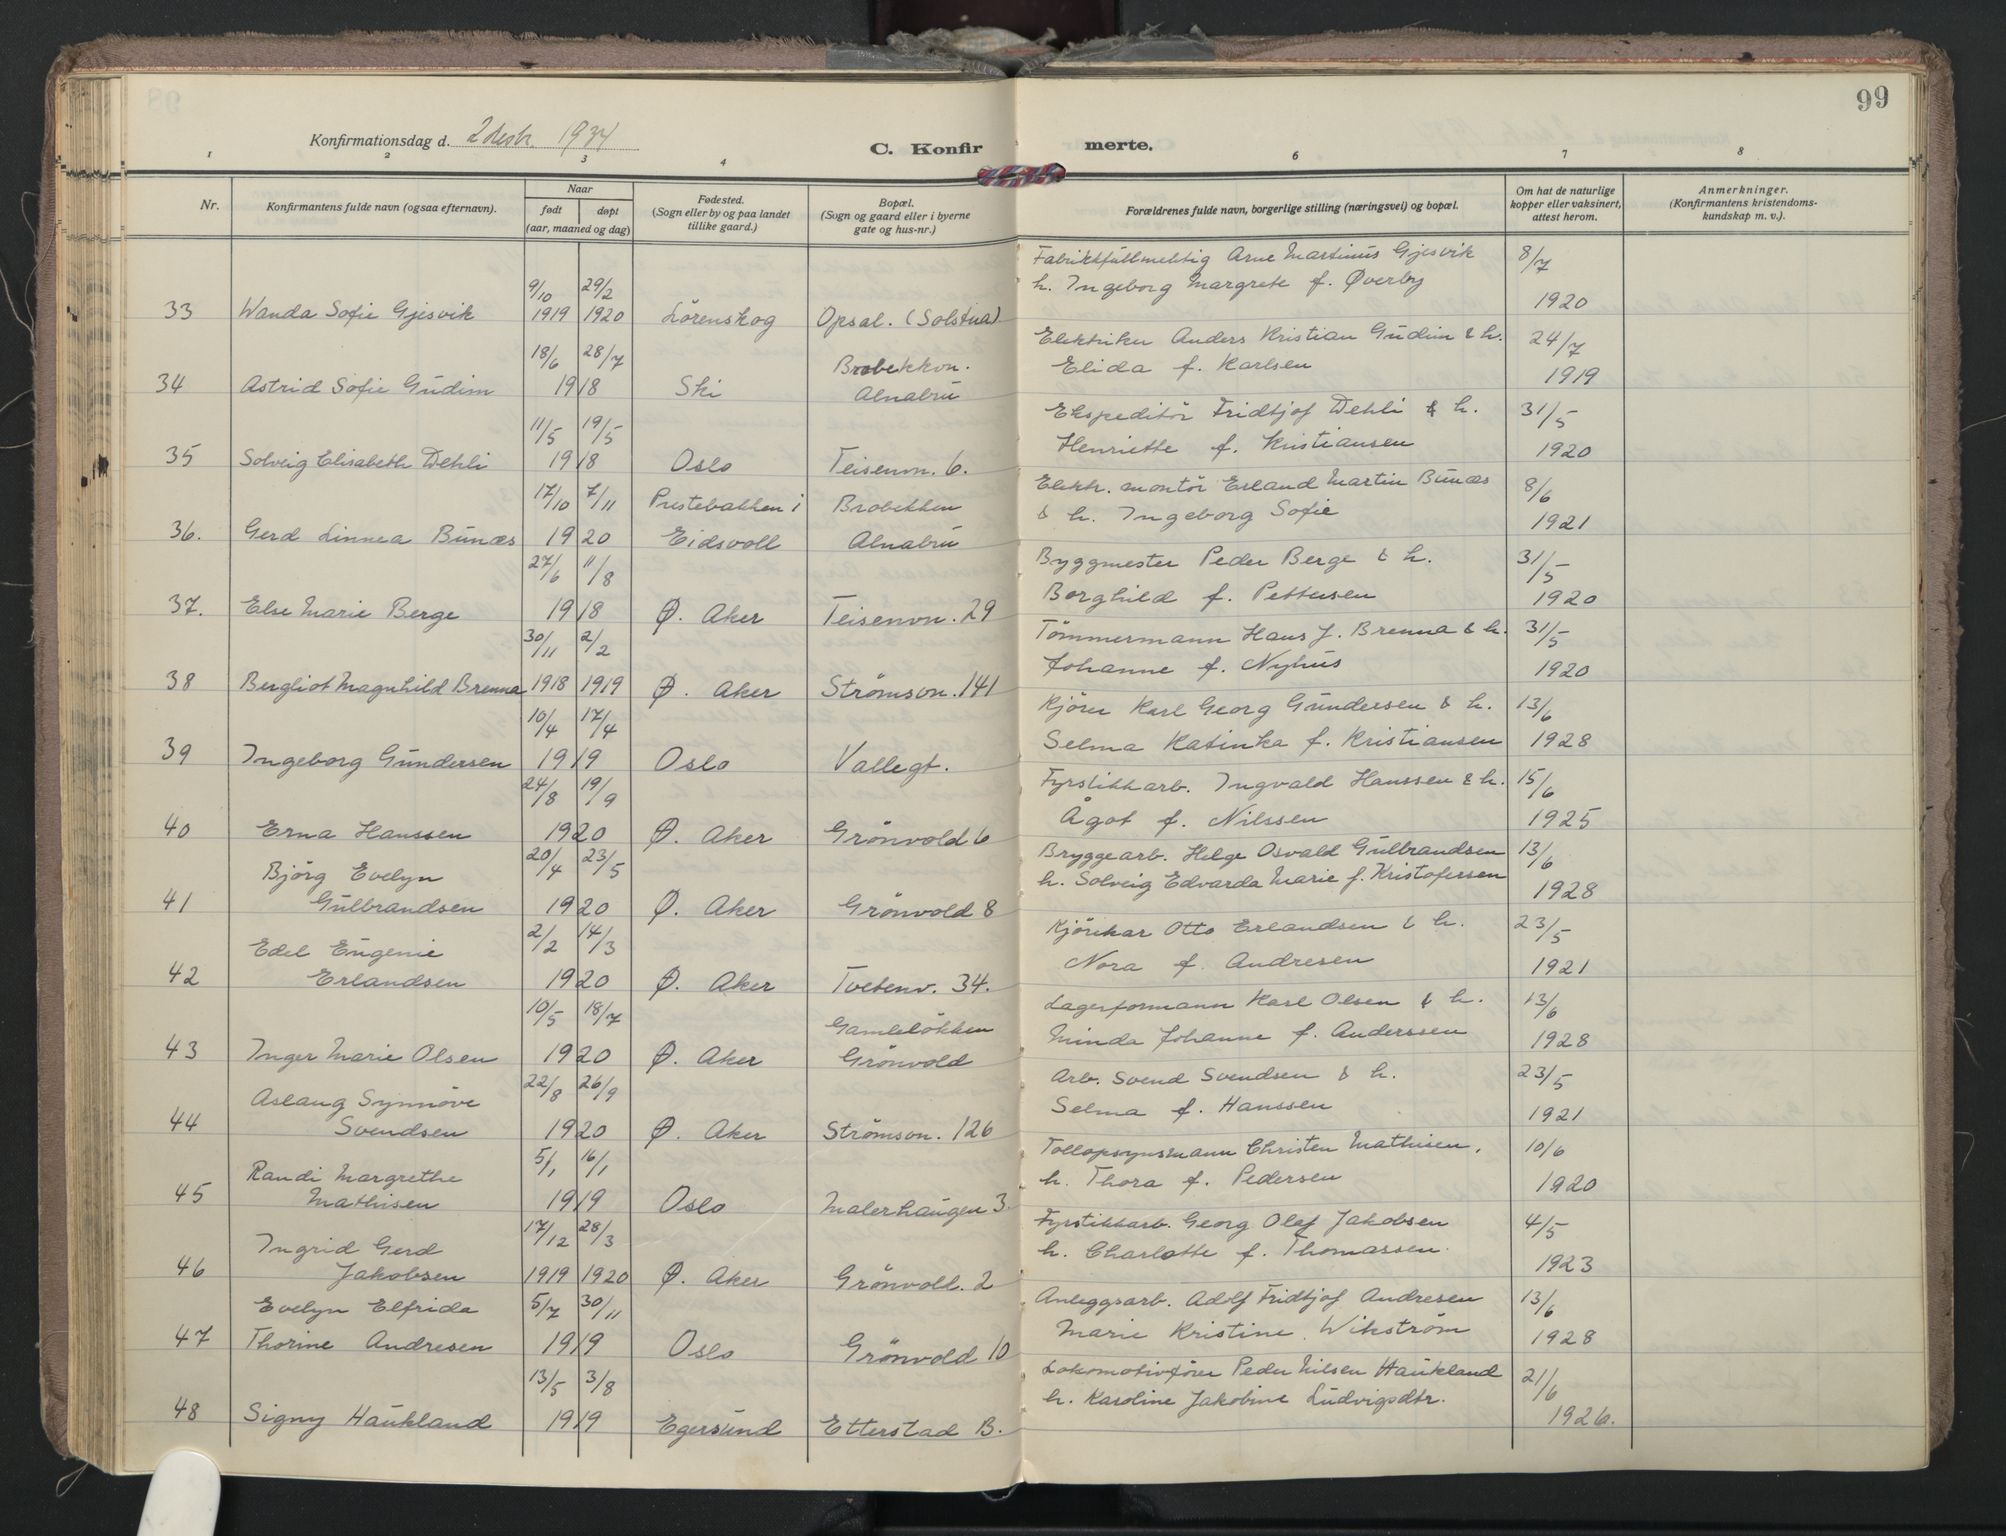 99
Konfirmationsdag d. 2 desbr. 1934
C. Konfirmerte.
1 2 3 4 5 6 7 8
Nr.
Konfirmantens fulde navn (ogsaa efternavn).
Naar
født døpt
(aar, maaned og dag)
Fødested.
(Sogn eller by og paa landet
tillike gaard.)
Bopæl.
(Sogn og gaard eller i byerne
gate og hus-nr.)
Forældrenes fulde navn, borgerlige stilling (næringsvei) og bopæl.
Om hat de naturlige
kopper eller vaksinert,
attest herom.
Anmerkninger.
(Konfirmantens kristendoms-
kundskap m. v.).
9/10 29/2 Fabrikkfullmektig Arne Martinus Gjesvik 8/7
33 Wanda Sofie Gjesvik 1919 1920 Lörenskog Opsal. (Solstua) h. Ingeborg Margrete f. Øverby 1920
18/6 28/7 Brobekkvn. Elektriker Anders Kristian Gudim & h. 24/7
34 Astrid Sofie Gudim 1918 Ski Alnabru Elida f. Karlsen 1919
11/5 19/5 Ekspeditör Fridtjof Dehli & h. 31/5
35 Solveig Elisabeth Dehli 1918 Oslo Teisenvn. 6. Henriette f. Kristiansen 1920
17/10 7/11 Prestebakken i Brobekken Elektr. montör Erland Martin Bunæs 8/6
36. Gerd Linnea Bunæs 1920 Eidsvoll Alnabru & h. Ingeborg Sofie 1921
27/6 11/8 Byggmester Peder Berge & h. 31/5
37. Else Marie Berge 1918 Ø. Aker Teisenvn. 29 Borghild f. Pettersen 1920
30/11 2/2 Tömmermann Hans J. Brenna & h. 31/5
38 Bergliot Magnhild Brenna 1918 1919 Ø. Aker Strömsvn. 141 Johanne f. Nyhus 1920
10/4 17/4 Kjörer Karl Georg Gundersen & h. 13/6
39 Ingeborg Gundersen 1919 Oslo Vallegt. Selma Katinka f. Kristiansen 1928
24/8 19/9 Fyrstikkarb. Ingvald Hanssen & h. 15/6
40 Erna Hanssen 1920 Ø. Aker Grönvold 6 Ågot f. Nilssen 1925
Björg Evelyn 20/4 23/5 Bryggearb. Helge Osvald Gulbrandsen 13/6
41 Gulbrandsen 1920 Ø. Aker Grönvold 8 h. Solveig Edvarda Marie f. Kristofersen 1928
Edel Eugenie 2/2 14/3 Kjörekar Otto Erlandsen & h. 23/5
42 Erlandsen 1920 Ø. Aker Tvetenv. 34. Nora f. Andresen 1921
10/5 18/7 Gamlelökken Lagerformann Karl Olsen & h. 13/6
43 Inger Marie Olsen 1920 Ø. Aker Grönvold Minda Johanne f. Anderssen 1928
Aslaug Synnöve 22/8 26/9 Arb. Svend Svendsen & h. 23/5
44 Svendsen 1920 Ø. Aker Strömsvn. 126 Selma f. Hanssen 1921
Randi Margrethe 5/1 16/1 Tollopsynsmann Christen Mathisen, 10/6
45 Mathisen 1919 Oslo Malerhaugen 3. h. Thora f. Pedersen 1920
Ingrid Gerd 17/12 28/3 Fyrstikkarb. Georg Olaf Jakobsen 4/5
46 Jakobsen 1919 1920 Ø. Aker Grönvoll. 2 h. Charlotte f. Thomassen. 1923
Evelyn Elfrida 5/7 30/11 Anleggsarb. Adolf Fridtjof Andresen 13/6
47 Thorine Andresen 1919 Oslo Grönvold 10 Marie Kristine. Wikström 1928
13/5 3/8 Lokomotivförer Peder Nilsen Haukland 21/6
48 Signy Haukland 1919 Egersund Etterstad B. h. Karoline Jakobine Ludvigsdtr. 1926.